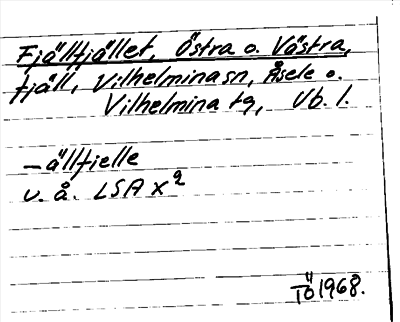 Fjällfjället, Östra o. Västra,
fjäll, Vilhelmina sn, Åsele o.
Vilhelmina tg, Vb. l.
-ällfjelle
v. å. LSA X²
TÖ 1968.